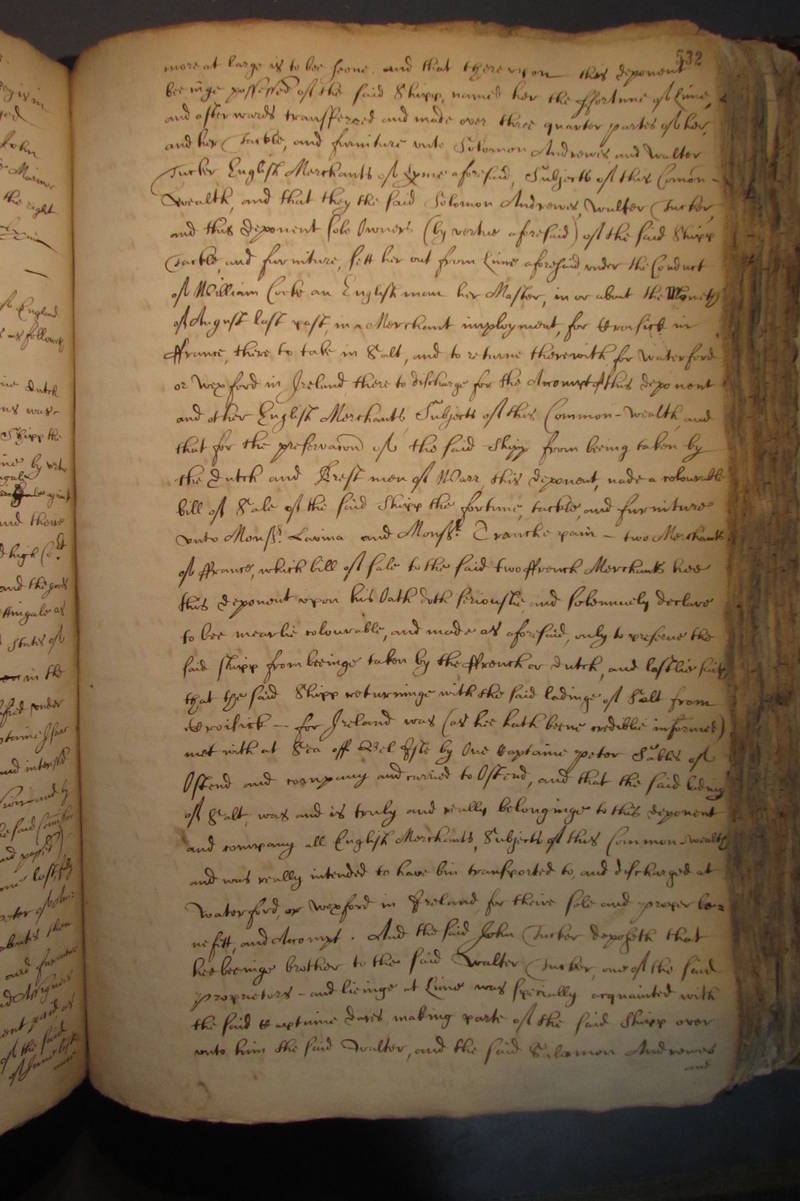 532
more at large is to bee seene. and that thereupon this deponent
beeinge possessed of the said Shipp, named her the ffortune of Lime,
and afterwards transferred and made over three quarter partes of her,
and her Tackle, and furniture unto Solomon Andrewes and Walter
Tucker English Merchants of Lyme aforesaid, Subjects of this Comon-
Wealth, and that they the said Solomon Andrewes, Walter Tucker,
and this deponent sole Owners (by vertue aforesaid) of the said Shipp
Tackle, and furniture, sett her out from Lime aforesaid under the Conduct
of William Cocke an English man her Master, in or about the Moneth
of August last past, in a Merchant imployment, for Croisick in
ffrance, there to take in Salt, and to returne therewith for Waterford
or Wexford in Ireland there to discharge for the Accompt of this deponent
and other English Merchants, Subjects of this Common-wealth, and
that for the preservacon of the said Shipp from beeing taken by
the Dutch and Brest men of Warr, this deponent, made a colourable
bill of Sale of the said Shipp the fortune, tackle, and furniture
unto Monsr. Lavina and Monsr. Trencke pain - two Merchants
of ffrance, which bill of sale to the said two ffrench Merchants hee
this deponent upon his Oath doth seriouslie and solemnely declare
to bee mearlie colourable, and made as aforesaid, only to preserve the
said shipp from beeinge taken by the ffrench or Dutch, and lastlie saith
that the said Shipp returninge with the said ladinge of Salt from
Croisick - for Ireland was (as hee hath beene credible informed)
mett with at Sea off Bel Isle by One Captaine peter Sables of
Ostend and company and carried to Ostend, and that the said lading
of Salt was and is truly and really belonginge to this deponent
and company all English Merchants, Subjects of this Common-wealth
and was really intended to have bin transported to, and discharged at
Waterford or Wexford in Ireland for theire sole and proper be=
nefitt, and Accompt. And the said John Tucker deposeth that
hee beeinge brother to the said Walter Tucker, one of the said
proprietors - and lieinge at Lime was specially acquainted with
the said Captaine Dares making parte of the said Shipp over
unto him the said Walter, and the said Salamon Andrewes
and